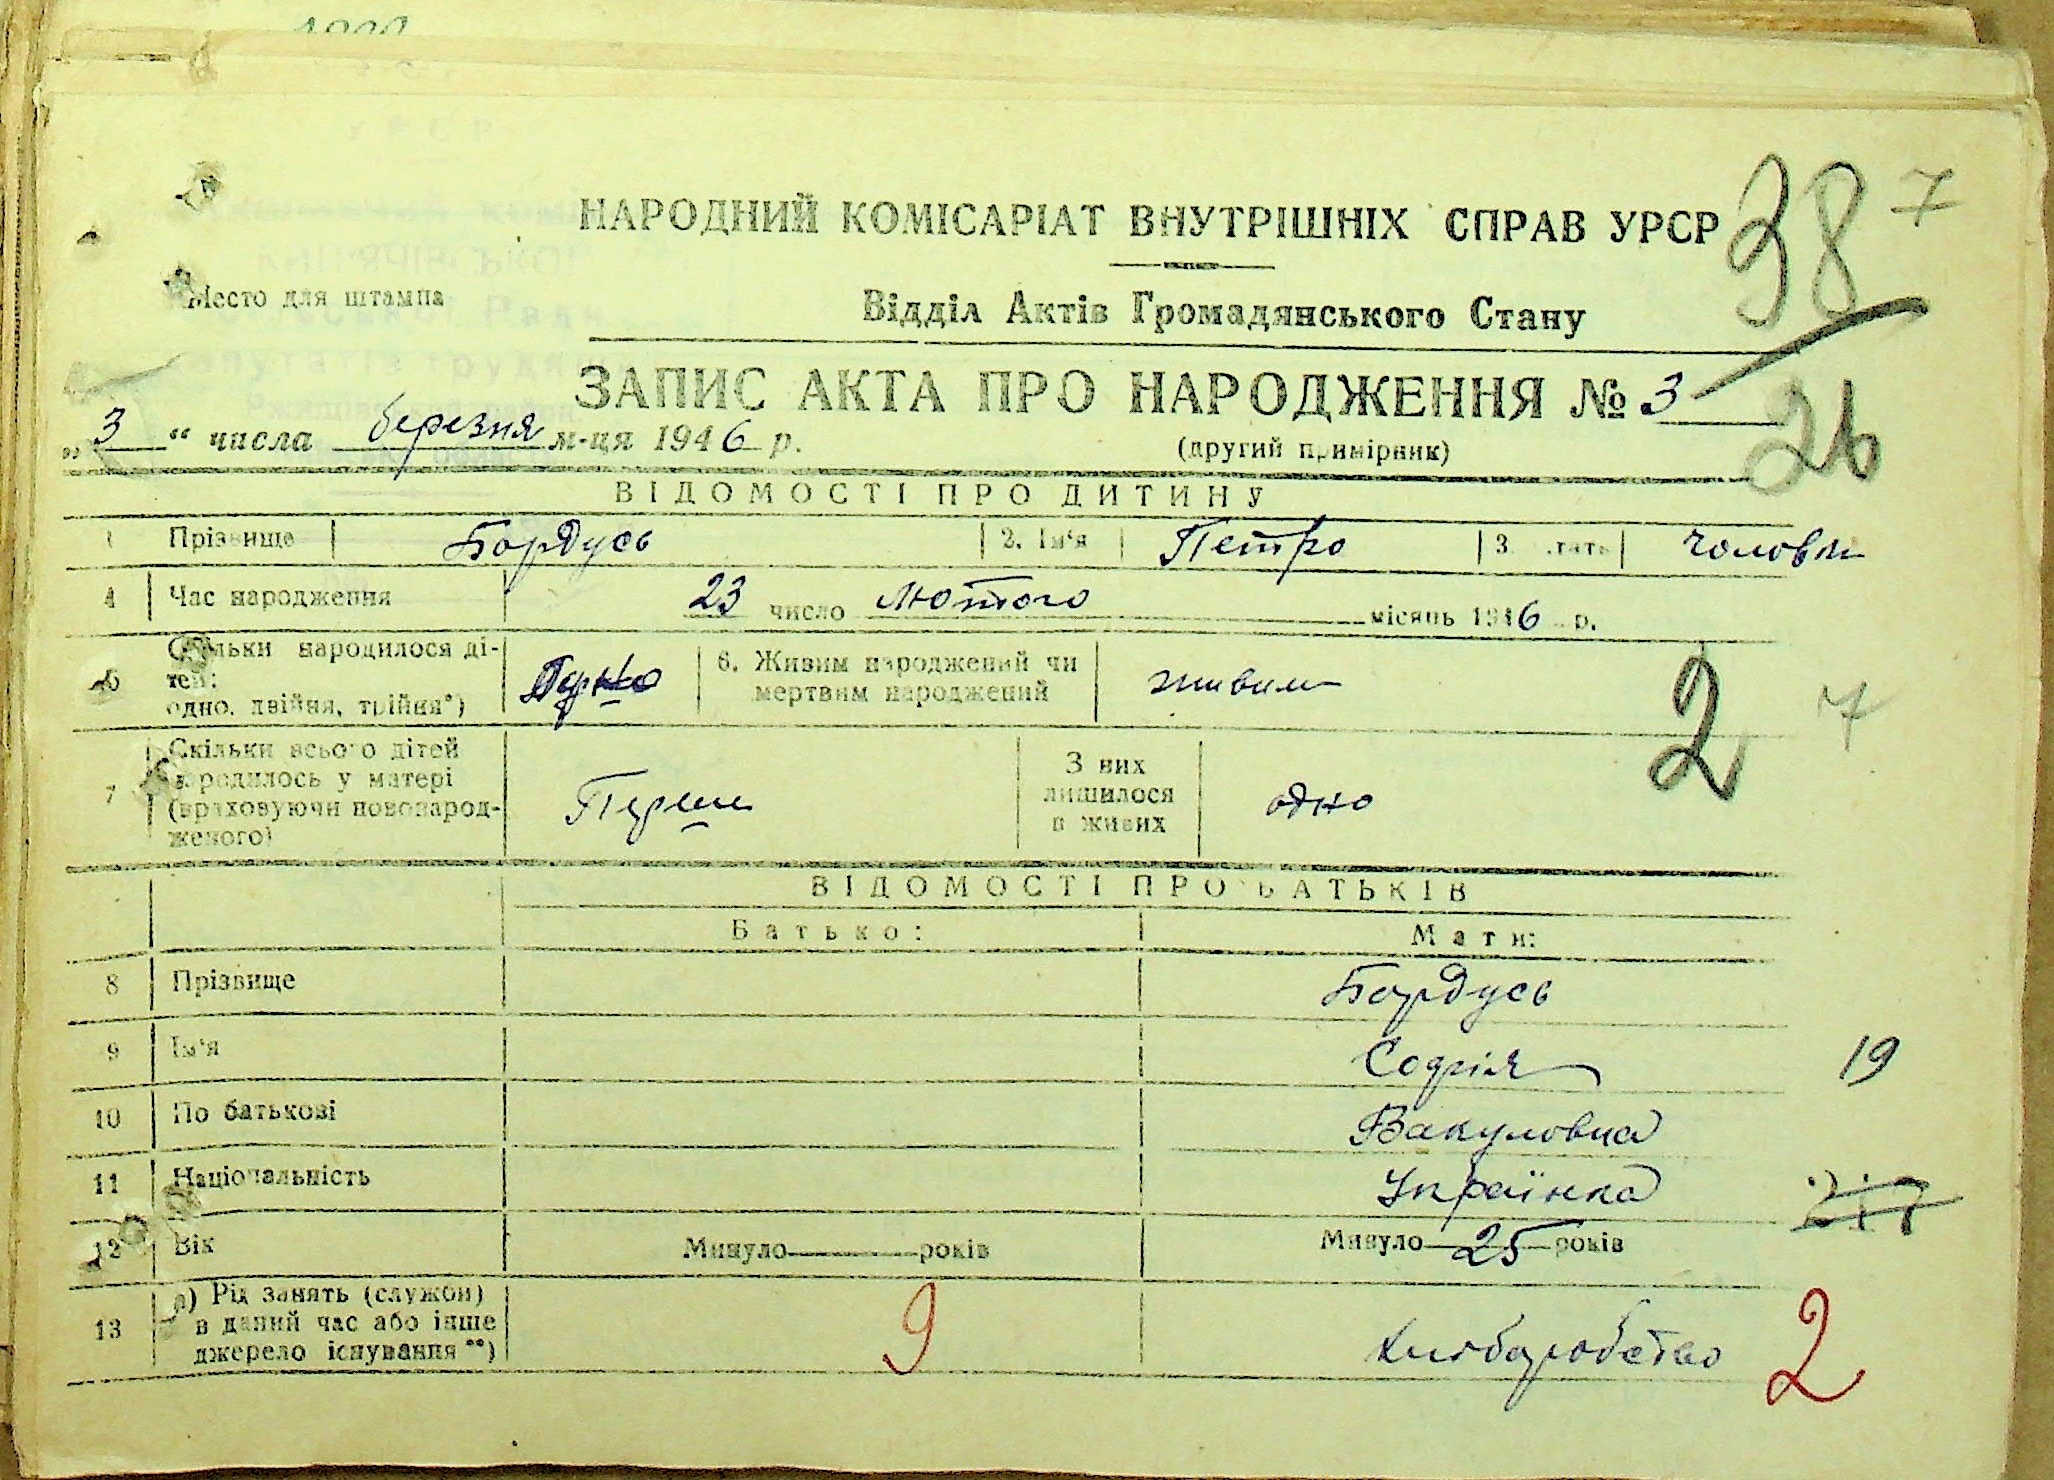 НАРОДНИЙ КОМІСАРІАТ ВНУТРІШНІХ СПРАВ УРСР
38 7
Место для штампа
Відділ Актів Громадянського Стану
ЗАПИС АКТА ПРО НАРОДЖЕННЯ № 3
26
„3“ числа березня м-ця 1946 р.
(другий примірник)
ВІДОМОСТІ ПРО ДИТИНУ
1 Прізвище Бордусь 2. Ім'я Петро 3. стать чоловіч
4 Час народження 23 число лютого місяць 1946 р.
5 Скільки народилося ді-
тей:
одно, двійня, трійня*)
Одно
6. Живим народжений чи
мертвим народжений
живим
2 7
7 Скільки всього дітей
народилось у матері
(враховуючи новонарод-
женого)
Перше
З них
лишилося
в живих
одно
ВІДОМОСТІ ПРО БАТЬКІВ
Батько: Мати:
8 Прізвище Бордусь
9 Ім'я Софія 19
10 По батькові Вакуловна
11 Національність Українка
12 Вік Минуло років Минуло 25 років
13 а) Рід занять (служби)
в даний час або інше
джерело існування **)
9 Хліборобство 2